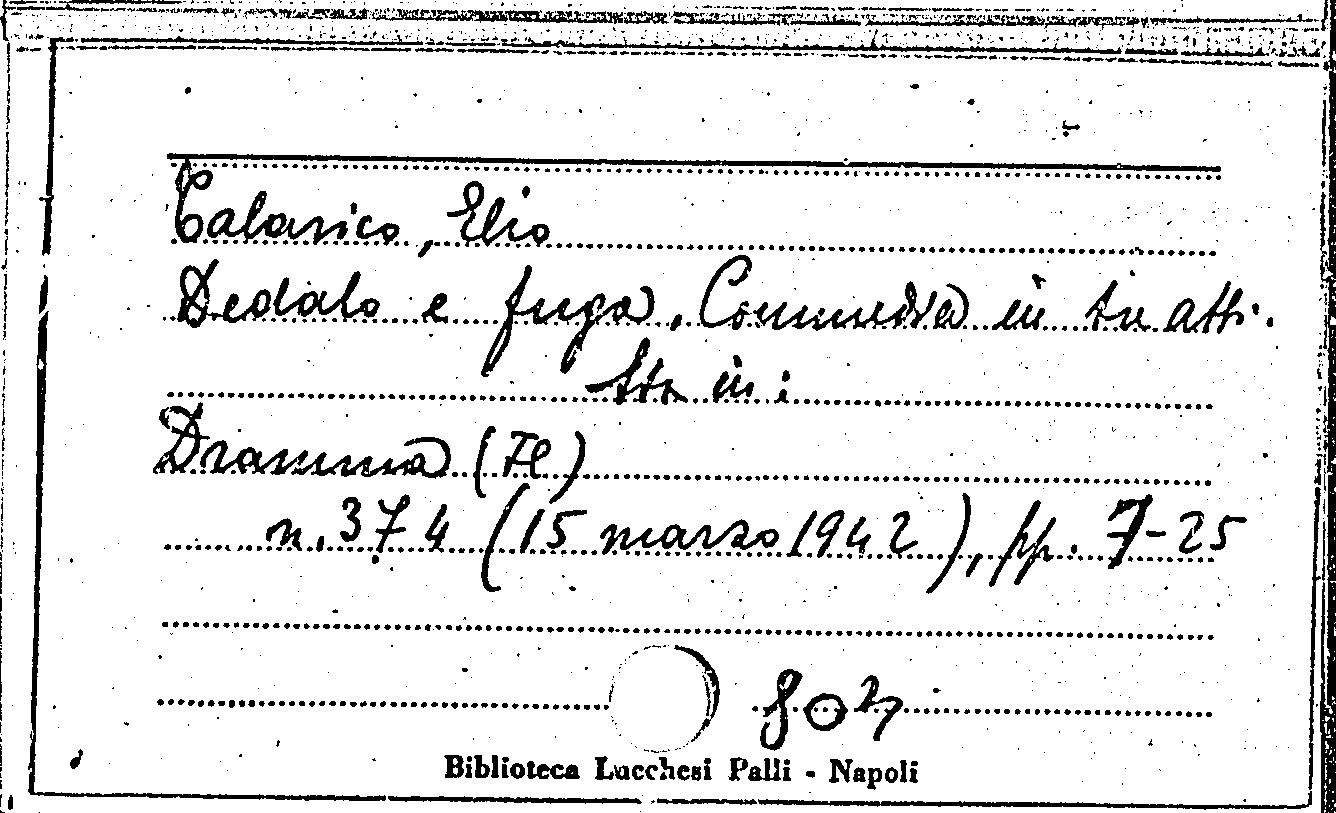 Talarico, Elio
Dedalo e fuga. Commedia in tre atti.
Sta in:
Dramma (Il)
n. 374 (15 marzo 1942), pp. 7-25
Biblioteca Lucchesi Palli - Napoli